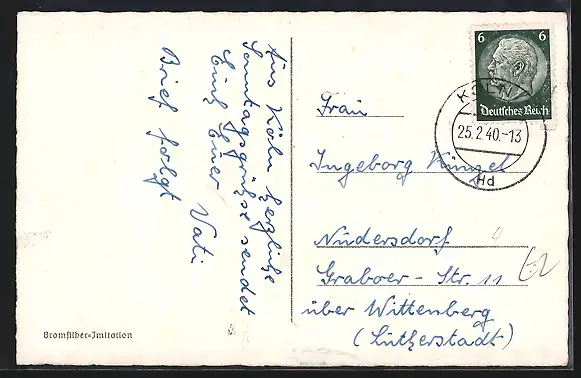 Aus Köln herzliche
Sonntagsgrüsse sendet
Euch Euer Vati
Brief folgt
6 6
Deutsches Reich
KÖLN
25.2.40.-13
Frau
Ingeborg Künzel
Nudersdorf
Graboer-Str. 11
über Wittenberg
(Lutherstadt)
Bromsilber-Imitation